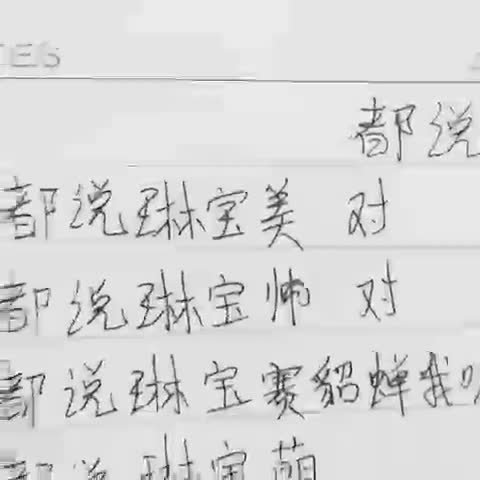 都说
都说琳宝美 对
都说琳宝帅 对
都说琳宝赛貂蝉我
都说琳宝萌